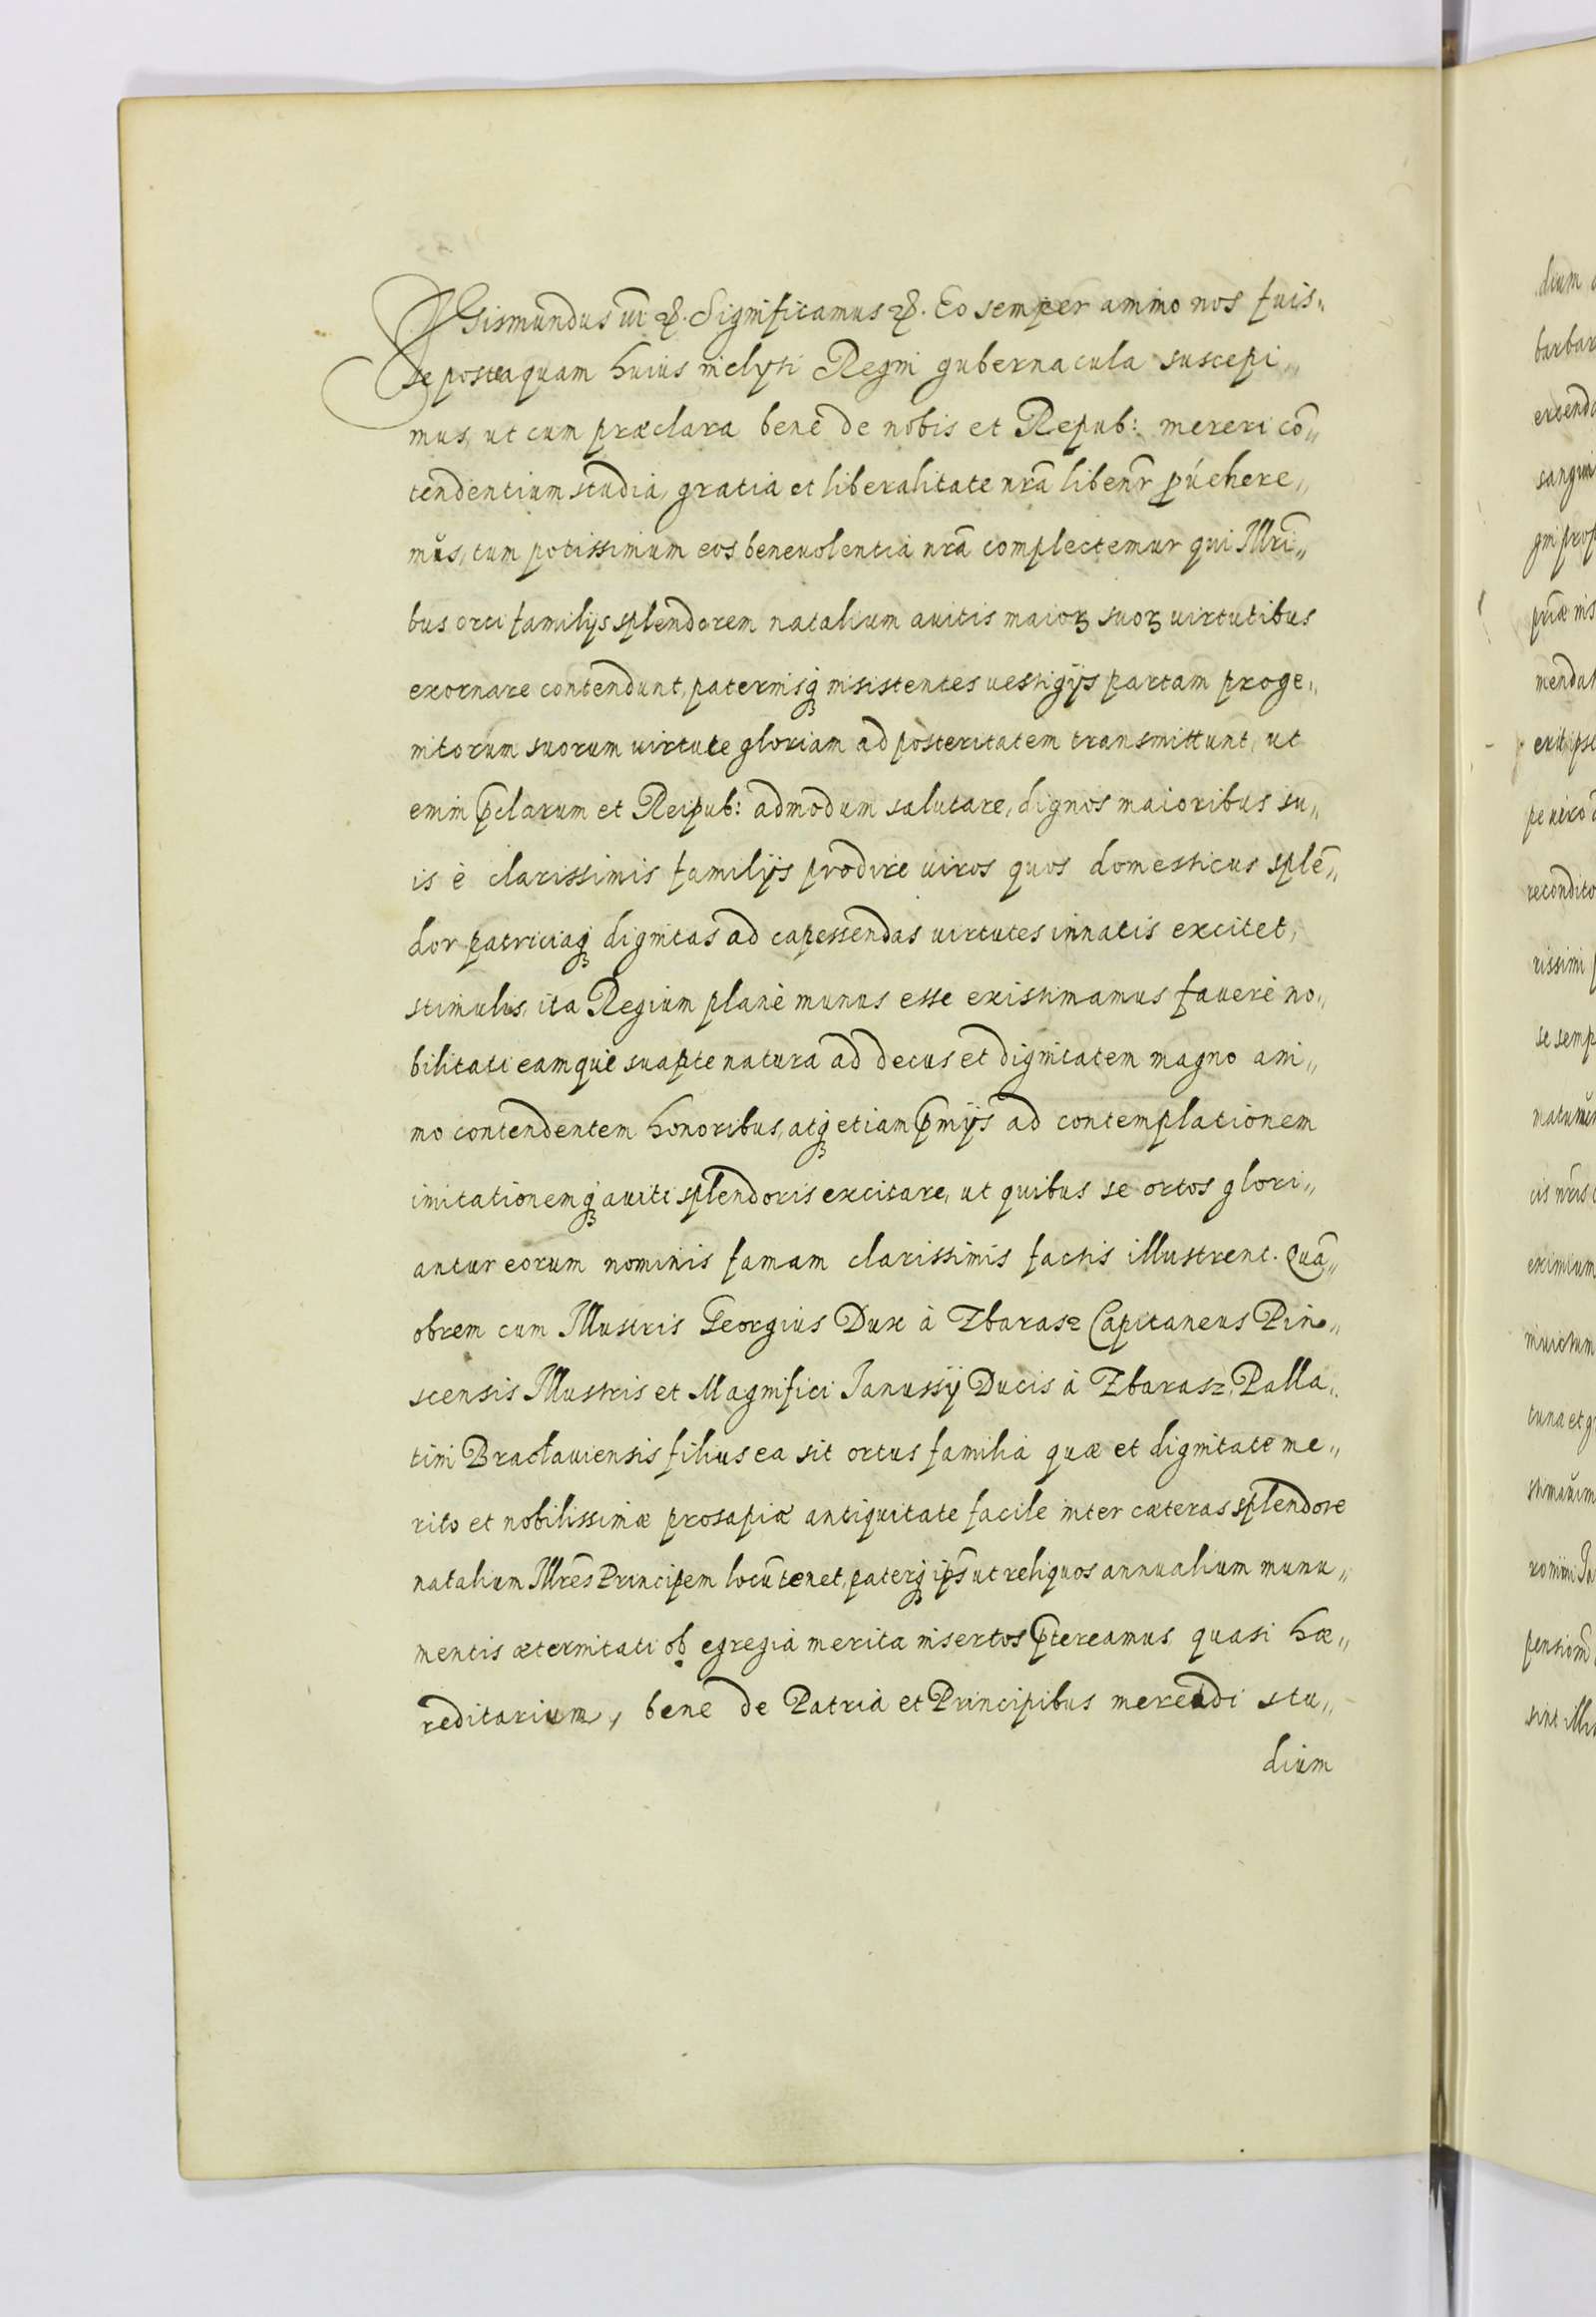 Sigismundus III etc. Significamus etc. Eo semper animo nos fuis„
se posteaquam huius inclyti Regni gubernacula suscepi„
mus, ut cum præclara bene de nobis et Repub: mereri cō„
tendentium studia, gratia et liberalitate nrã libenr̃ ꝓuehere„
mus, tum potissimum eos beneuolentia nrã complectemur qui Illrĩ„
bus orti familijs splendorem natalium auitis maioꝝ suoꝝ uirtutibus
exornare contendunt, paternisqꝫ insistentes uestigijs partam proge„
nitorum suorum uirtute gloriam ad posteritatem transmittunt, ut
enim p̃clarum et Reipub: admodum salutare, dignos maioribus su„
is è clarissimis familijs prodire uiros quos domesticus splē„
dor patriciaqꝫ dignitas ad capessendas uirtutes innatis excitet,
stimulis, ita Regium planè munus esse existimamus fauere no„
bilitati eamque suapte natura ad decus et dignitatem magno ani„
mo contendentem honoribus, atqꝫ etiam p̃mijs ad contemplationem
imitationemqꝫ auiti splendoris excitare, ut quibus se ortos glori„
antur eorum nominis famam clarissimis factis illustrent. Quã„
obrem cum Illustris Georgius Dux à Zbarasz Capitaneus Pin„
scensis Illustris et Magnifici Janussij Ducis à Zbarasz, Palla„
tini Bracłauiensis filius ea sit ortus familia quæ et dignitate me„
rito et nobilissimæ prosapiæ antiquitate facile inter cæteras splendore
natalium Illrẽs Principem locũ tenet, paterqꝫ ip̃s ut reliquos annualium munu„
mentis æternitati ob egregia merita insertos p̃tereamus quasi hæ„
reditarium, bene de Patria et Principibus merendi stu„
dium
dium
barbar
sangui
se semp
recondito
rissimi
eximium